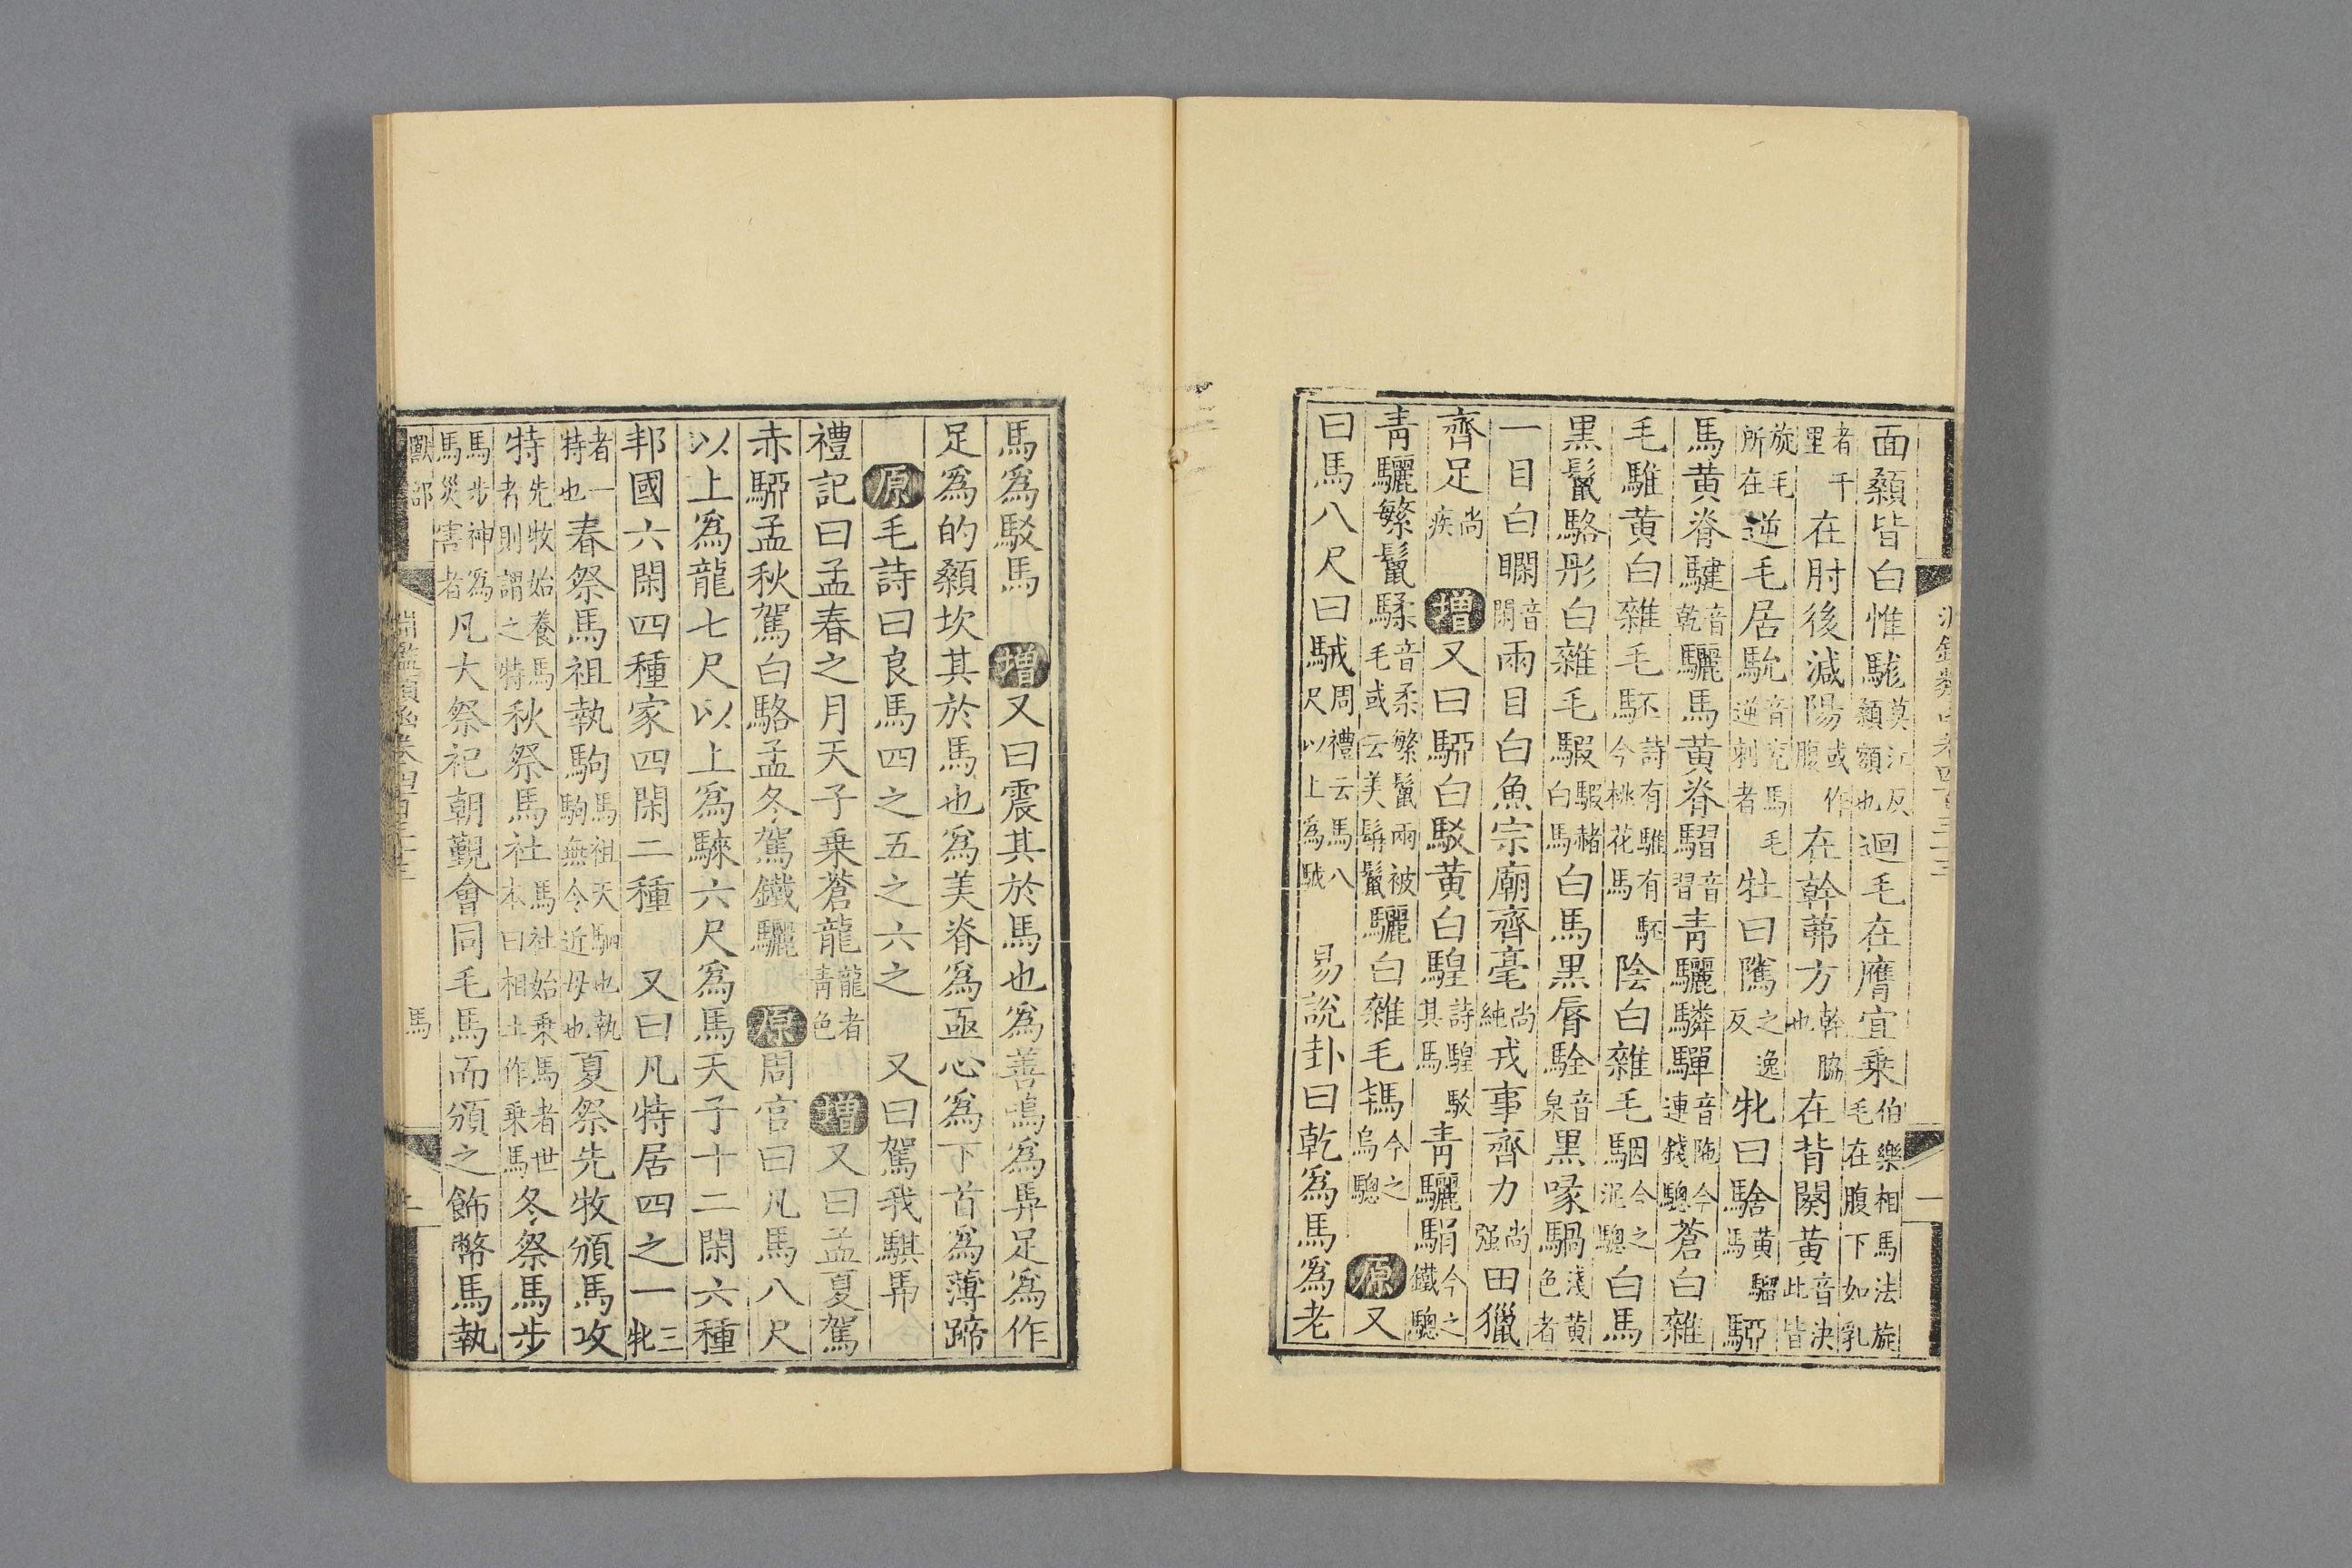 面顙皆白惟駹莫江反顙額也迴毛在膺宜乗伯樂相馬法旋毛在腹下如乳
者千里在肘後減陽或作腹在幹茀方幹脇也在背闋黃音決此皆
旋毛所在逆毛居馻音兖馬毛逆刺者牡曰隲之逸反牝曰騇黃馬騮騢
馬黃脊騝音乾驪馬黃脊騽音習青驪驎驒音陁今連錢驄蒼白雜
毛騅黃白雜毛駓詩有騅有駓今桃花馬陰白雜毛駰今之泥驄白馬
黒鬣駱彤白雜毛騢騢赭白馬白馬黒脣駩音泉黒喙騧淺黃色者
一目白瞯音閑兩目白魚宗廟齊毫尚純戎事齊力尚强田獵
齊足尚疾　增又曰騢白駁黃白騜詩騜駁其馬青驪駽今之鐵驄
青驪繁鬣騥音柔繁鬣兩被毛或云美髦鬣驪白雜毛駂今之烏驄　原又
曰馬八尺曰駥周禮云馬八尺以上爲駥　易說卦曰乾爲馬爲老
馬爲駁馬　增又曰震其於馬也爲善鳴爲馵足爲作
足爲的顙坎其於馬也爲美脊爲亟心爲下首爲薄蹄
原毛詩曰良馬四之五之六之　又曰駕我騏馵
禮記曰孟春之月天子乗蒼龍龍者青色　增又曰孟夏駕
赤騮孟秋駕白駱孟冬駕鐵驪　原周官曰凡馬八尺
以上爲龍七尺以上爲騋六尺爲馬天子十二閑六種
邦國六閑四種家四閑二種　又曰凡特居四之一三牝
者一特也春祭馬祖執駒馬祖天駟也執駒無令近母也夏祭先牧頒馬攻
特先牧始養馬者則謂之特秋祭馬社馬社始乗馬者世本曰相土作乗馬冬祭馬步
馬步神爲馬災害者凡大祭祀朝覲會同毛馬而頒之飾幣馬執
獸部　淵鑑類函卷四百三十三　馬